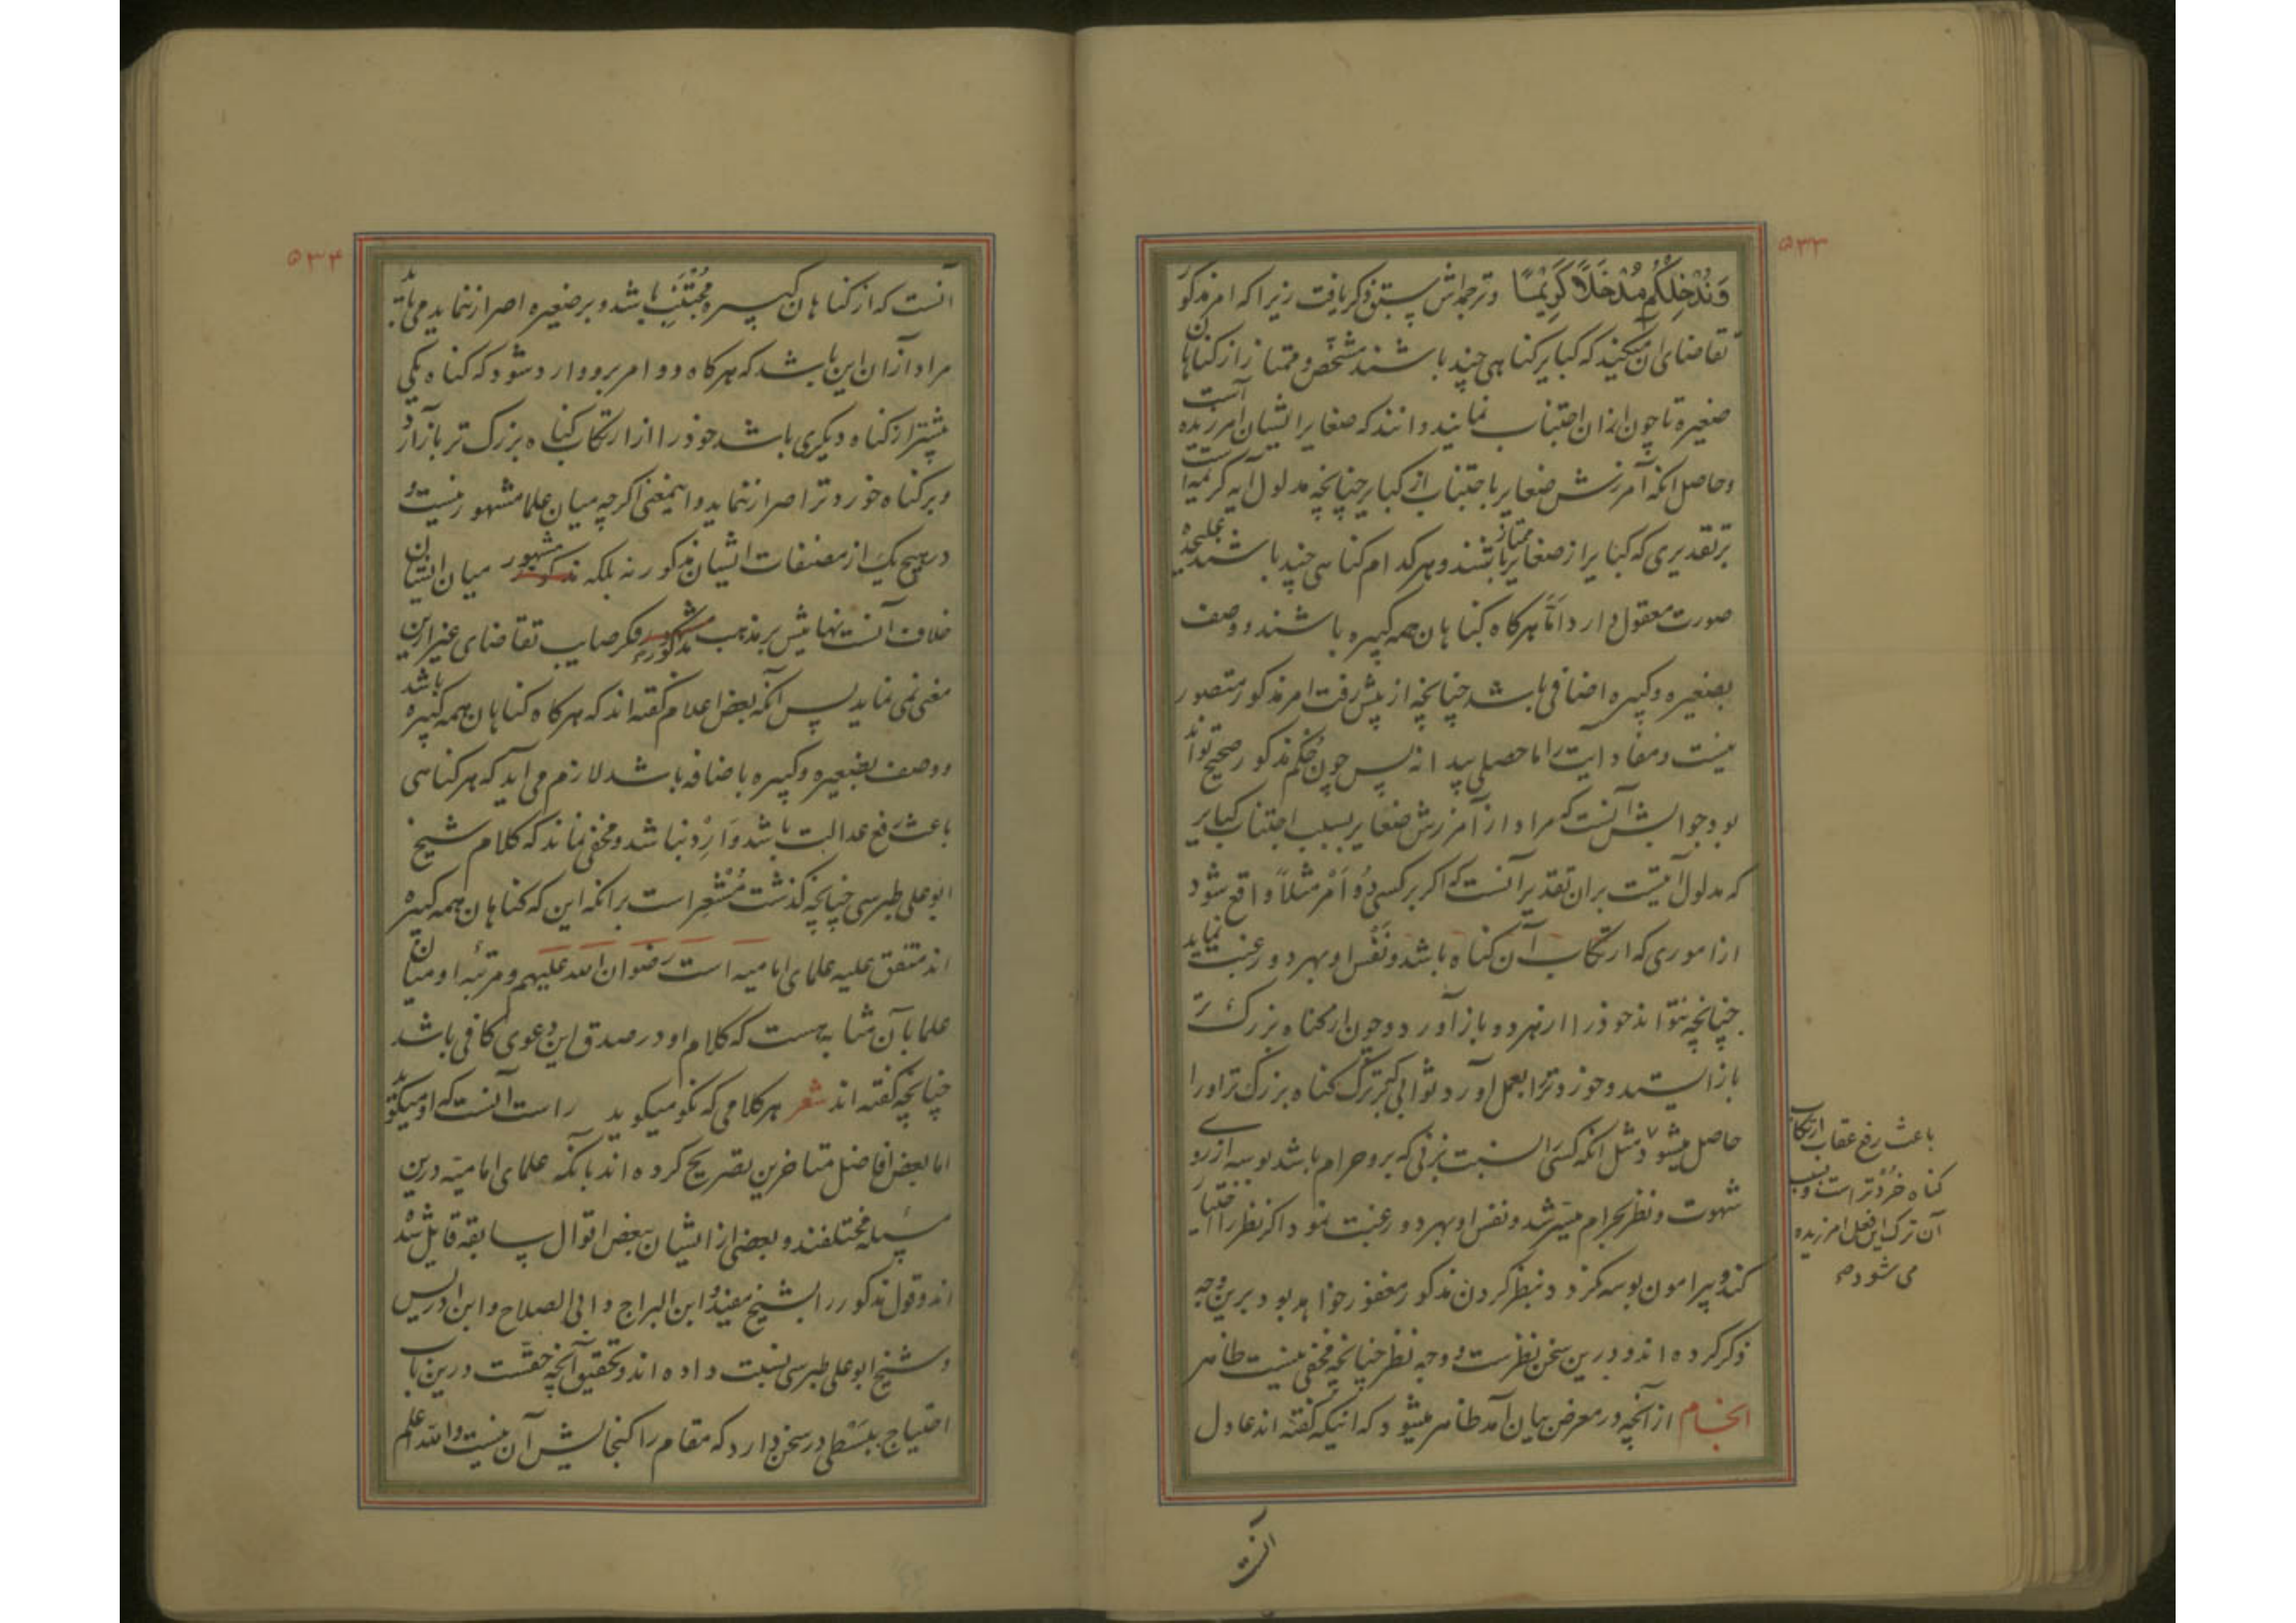 ۵۳۳
وَنُدْخِلْكُمْ مُدْخَلًا كَرِيْمًا وترجمه‌اش سبق ذكر یافت زیرا که امر مذکور
تقاضای آن میکند که کبایر کناهی چند باشند مشخّص و ممتاز از کناهان
صغیره تا چون از ان اجتناب نمایند دانند که صغایر ایشان امرزیده است
و حاصل انکه آمرزش صغایر باجتناب از کبایر چنانچه مدلول ایه کریمه است
بر تقدیری که کبایر از صغایر ممتاز باشند و هر کدام کناهی چند باشند علیحده
صورت معقول دارد امّا هرکاه کناهان همه کبیره باشند و وصف
بصغیره و کبیره اضافی باشد چنانچه از پیش رفت امر مذکور متصور
نیست و مفاد ایت را ماحصلی پیدا نه پس چون حکم مذکور صحیح تواند
بود جوابش آنست که مراد از آمرزش صغایر بسبب اجتناب کبایر
که مدلول آیتست بران تقدیر آنست که اکر بر کسی دُو اَمْر مثلاً واقع شود
از اموری که ارتکاب آن کناه باشد و نَفْس او بهر دو رغبت نماید
چنانچه نتواند خود را از هر دو باز آورد و چون از کناه بزرک تر
باز ایستد و خوردتر را بعمل آورد ثوابی که بر ترک کناه بزرک تر او را
حاصل میشود مثل انکه کسی را نسبت بزنی که برو حرام باشد بوسه از روی
شهوت و نظر بحرام میسّر شد و نفس او بهر دو رغبت نمود اکر نظر را اختیار
کند و پیرامون بوسه نکردد بنظر کردن مذکور مغفور خواهد بود برین وجه
ذکر کرده اند و درین سخن نظرست و وجه نظر چنانچه مخفی نیست ظاهر
انجام از آنچه در معرض بیان آمد ظاهر میشود که انیکه کفته اند عادل
باعث رفع عقاب ارتکاب
کناه خُرْدتر است و بسبب
آن ترک این فعل امرزیده
می شود صح
انست
۵۳۴
آنست که از کناهان کبیره مُجْتَنِب باشد و بر صغیره اصرار ننماید می باید
مراد از آن این باشد که هرکاه دو امر برو وارد شود که کناه یکی
بیشتر از کناه دیکری باشد خود را از ارتکاب کناه بزرک تر باز آرد
و بر کناه خوردتر اصرار ننماید و اینمعنی اکرچه میان علما مشهور نیست و
در هیچ یک از مصنفات ایشان مذکور نه بلکه مشهور میان ایشان
خلاف آنست نهایتش بر مذهب مذکوره فکر صایب تقاضای غیر این
معنی نمی نماید پس آنکه بعض اعلام کفته اند که هرکاه کناهان همه کبیره باشد
و وصف بصغیره و کبیره باضافه باشد لازم می اید که هر کناهی
باعث رفع عدالت باشد وَارِد نباشد و مخفی نماند که کلام شیخ
ابو علی طبرسی چنانچه کذشت مُشْعِر است برانکه این که کناهان همه کبیره
اند متفق علیه علمای امامیه است رضوان الله علیهم و مرتبهٔ او میان
علما بآن مثابه هست که کلام او در صدق این دعوی کافی باشد
چنانچه کفته اند شعر هر کلامی که نکو میکوید راست آنست که او میکوید
اما بعض افاضل متاخرین تصریح کرده اند بآنکه علمای امامیّه درین
مسئله مختلفند و بعضی از ایشان ببعض اقوال سابقه قایل شده
اند و قول مذکور را بشیخ مفید و ابن البراج و ابی الصلاح و ابن ادریس
و شیخ ابو علی طبرسی نسبت داده اند و تحقیق آنچه حقّست درین باب
احتیاج ببَسْطی در سخن دارد که مقام را کنجایش آن نیست والله اعلم